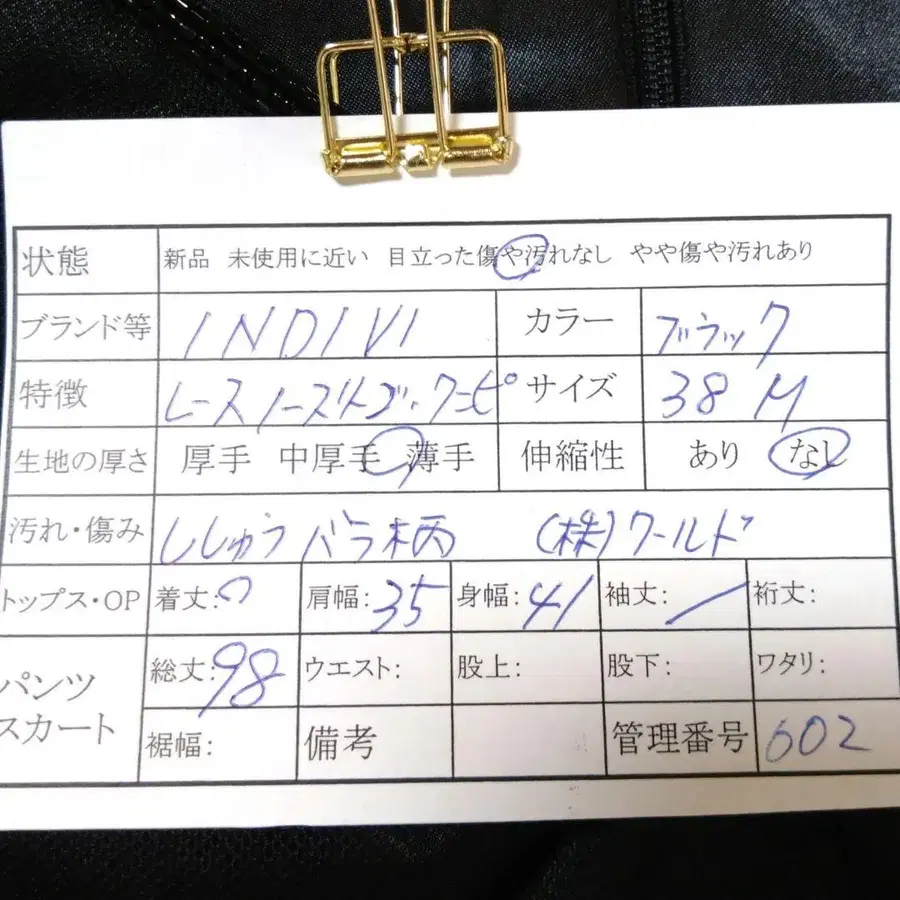 状態 新品 未使用に近い 目立った傷や汚れなし やや傷や汚れあり
ブランド等 INDIVI カラー ブラック
特徴 レースノースリーブ サイズ 38 M
生地の厚さ 厚手 中厚手 薄手 伸縮性 あり なし
汚れ・傷み ししゅう バラ柄 (株)ワールド
トップス・OP 着丈: 肩幅:35 身幅:41 袖丈: 裄丈:
パンツ スカート 総丈:98 ウエスト: 股上: 股下: ワタリ:
裾幅: 備考 管理番号 602